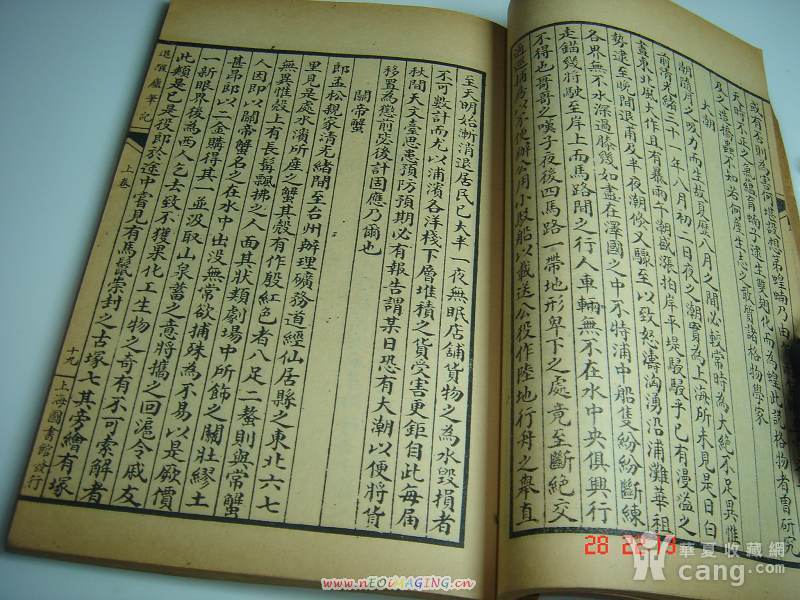 或有是則為害何堪設想第蝗蝻乃由而為蝗此說格物者曾研究
及之遺蝻蟲不知若何產生志之敢質諸格物學家
大潮
朝潮應月之吸力而生故夏曆八月之間必較常時為大絕不足異惟
前清光緒三十一年八月初二日夜之潮實為上海所未見是日白
晝東北風大作且有暴雨午潮盛漲拍岸平堤駸駸乎已有漫溢之
勢逮至晚間退甫及半夜潮倏又驟至以致怒濤洶湧沿浦灘華租
各界無不水深過膝幾如盡在澤國之中不特浦中船隻紛紛斷練
走錨幾將駛至岸上而馬路間之行人車輛無不在水中央俱興行
不得也哥哥之嘆子夜後四馬路一帶地形卑下之處竟至斷絕交
捕房以不便辦公用小駁船以載送公役作陸地行舟之舉直
至天明始漸消退居民已大半一夜無眠店舖貨物之為水毀損者
不可數計而尤以浦濱各洋棧下層堆積之貨受害更鉅自此每屆
秋間天文臺思患預防預期必有報告謂某日恐有大潮以便將貨
移置為懲前毖後計固應乃爾也
關帝蟹
郎孟松親家清光緒間至台州辦理礦務道經仙居縣之東北六七
里見是處水濱所產之蟹其殼有作殷紅色者八足二螯則與常蟹
無異惟殼上有長髯飄拂之人面其狀類劇場中所飾之關壯繆土
人因即以關帝蟹名之在水中出沒無常欲捕殊為不易以是厥價
甚昂郎以二金購得其一並汲取山泉蓄之意將攜之回滬令戚友
一新眼界後為西人乞去致不獲果化工生物之奇有不可索解者
此類是已是役郎於途中嘗見有馬鬣崇封之古塚七其旁繪有塚
退醒廬筆記
上卷
十九
上海圖書館發行
28 22 13
www.nEOiMAGING.cn
華夏收藏網
cang.com